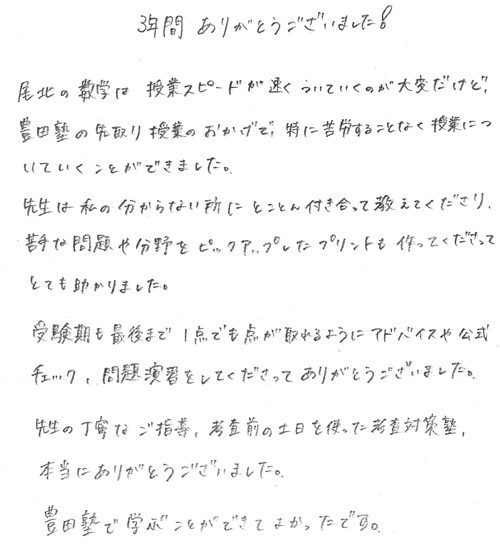 3年間 ありがとうございました!
尾北の数学は 授業スピードが速くついていくのが大変だけど、
豊田塾の先取り授業のおかげで、特に苦労することなく授業につ
いていくことができました。
先生は私の分からない所にとことん付き合って教えてくださり、
苦手な問題や分野をピックアップしたプリントも作ってくださって
とても助かりました。
受験期も最後まで1点でも点が取れるようにアドバイスや公式
チェック、問題演習をしてくださってありがとうございました。
先生の丁寧なご指導、考査前の土日を使った考査対策塾、
本当にありがとうございました。
豊田塾で学ぶことができてよかったです。